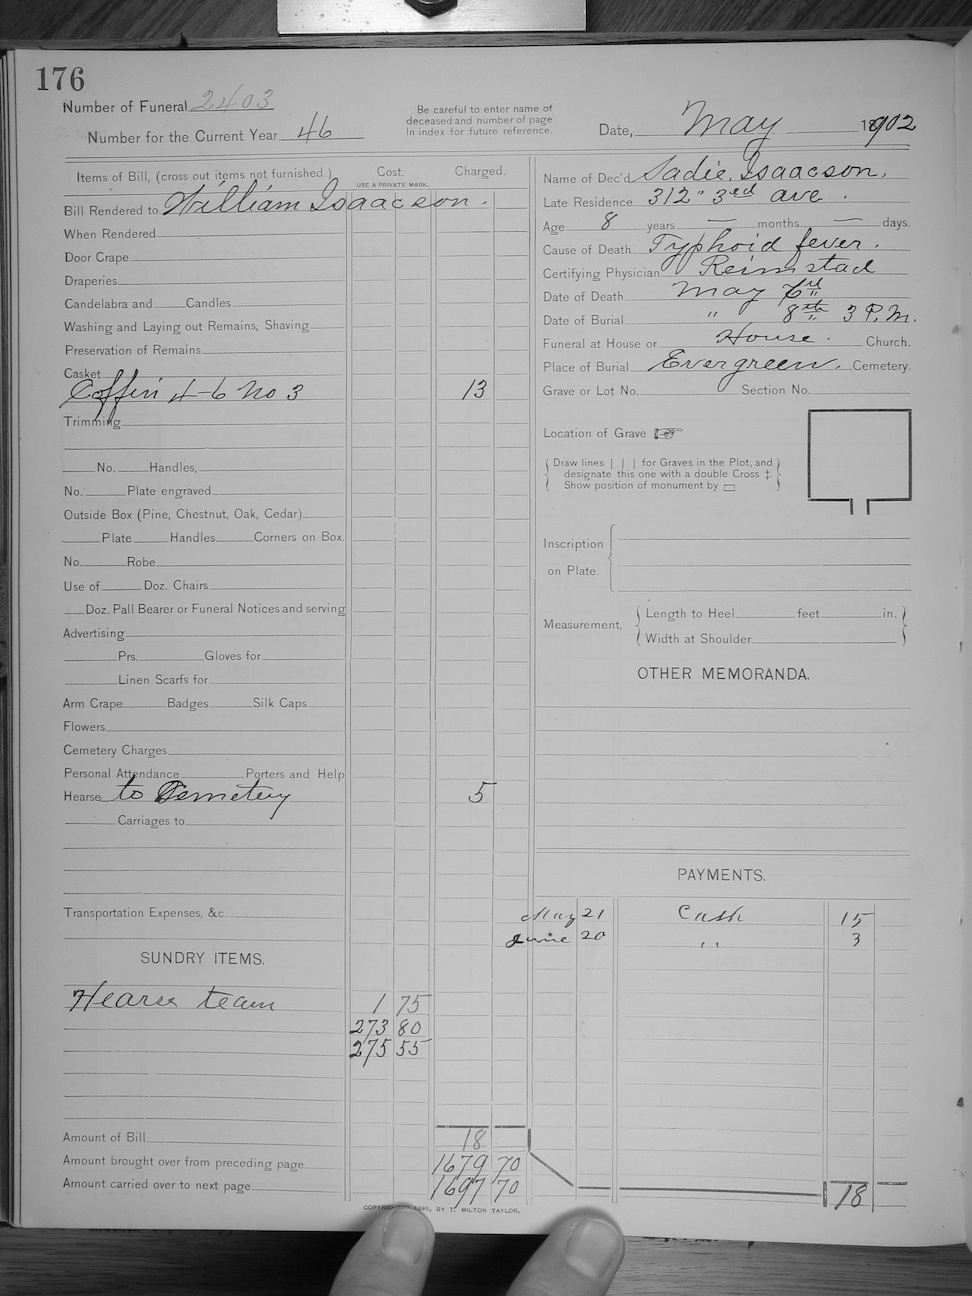 176
Number of Funeral 2403
Number for the Current Year 46
Be careful to enter name of
deceased and number of page
in index for future reference.
Date, May 1902
Items of Bill, (cross out items not furnished.) Cost. Charged.
USE A PRIVATE MARK.
Bill Rendered to William Isaacson.
When Rendered
Door Crape
Draperies
Candelabra and Candles
Washing and Laying out Remains, Shaving
Preservation of Remains
Casket
Coffin 4-6 No 3 13
Trimming
No. Handles,
No. Plate engraved
Outside Box (Pine, Chestnut, Oak, Cedar)
Plate Handles Corners on Box.
No. Robe
Use of Doz. Chairs
Doz. Pall Bearer or Funeral Notices and serving
Advertising
Prs. Gloves for
Linen Scarfs for
Arm Crape Badges Silk Caps
Flowers
Cemetery Charges
Personal Attendance Porters and Help
Hearse to Cemetery 5
Carriages to
Transportation Expenses, &c.
SUNDRY ITEMS.
Hearse team 1 75
273 80
275 55
Amount of Bill 18
Amount brought over from preceding page 1679 70
Amount carried over to next page 1697 70
COPYRIGHTED 1890, BY T. MILTON TAYLOR.
Name of Dec'd Sadie Isaacson.
Late Residence 312 " 3rd ave.
Age 8 years — months — days.
Cause of Death Typhoid fever.
Certifying Physician Reimstad
Date of Death May
Date of Burial " 8th 3 P.M.
Funeral at House or House. Church.
Place of Burial Evergreen. Cemetery.
Grave or Lot No. Section No.
Location of Grave
Draw lines | | | for Graves in the Plot, and
designate this one with a double Cross ‡.
Show position of monument by
Inscription
on Plate.
Measurement, Length to Heel feet in.
Width at Shoulder
OTHER MEMORANDA.
PAYMENTS.
May 21 Cash 15
June 20 " 3
18